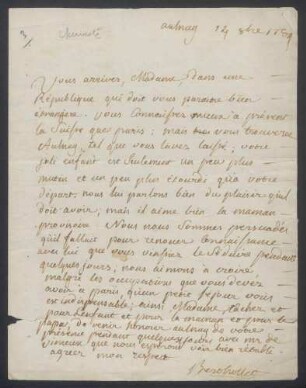 aulnay 14 8bre 1789
Vous arrivez, Madame, dans une
République qui doit vous paroitre bien
étrangère. vous connaissez mieux à présent
la Suisse que paris; mais vous trouverez
Aulnay tel que vous l'avez laissé, votre
joli enfant est seulement un peu plus
mutin et un peu plus étourdi qu'à votre
départ. nous lui parlons bien du plaisir qu'il
doit avoir, mais il aime bien la maman
Nous sommes persuadés
qu'il fallait pour renouer connaissance
avec lui que vous vinssiez le séduire pendant
quelques jours, nous aimons à croire
malgré les occupations que vous devez
avoir à paris, qu'un petit séjour vous
est indispensable; ainsi Madame, tachez
pour l'enfant et pour la maman et pour le
papa, de venir honorer aulnay de votre
présence pendant quelques jours avec mr de
que nous espérons voir bien rétabli.
agréez mon respect.
Berthollet